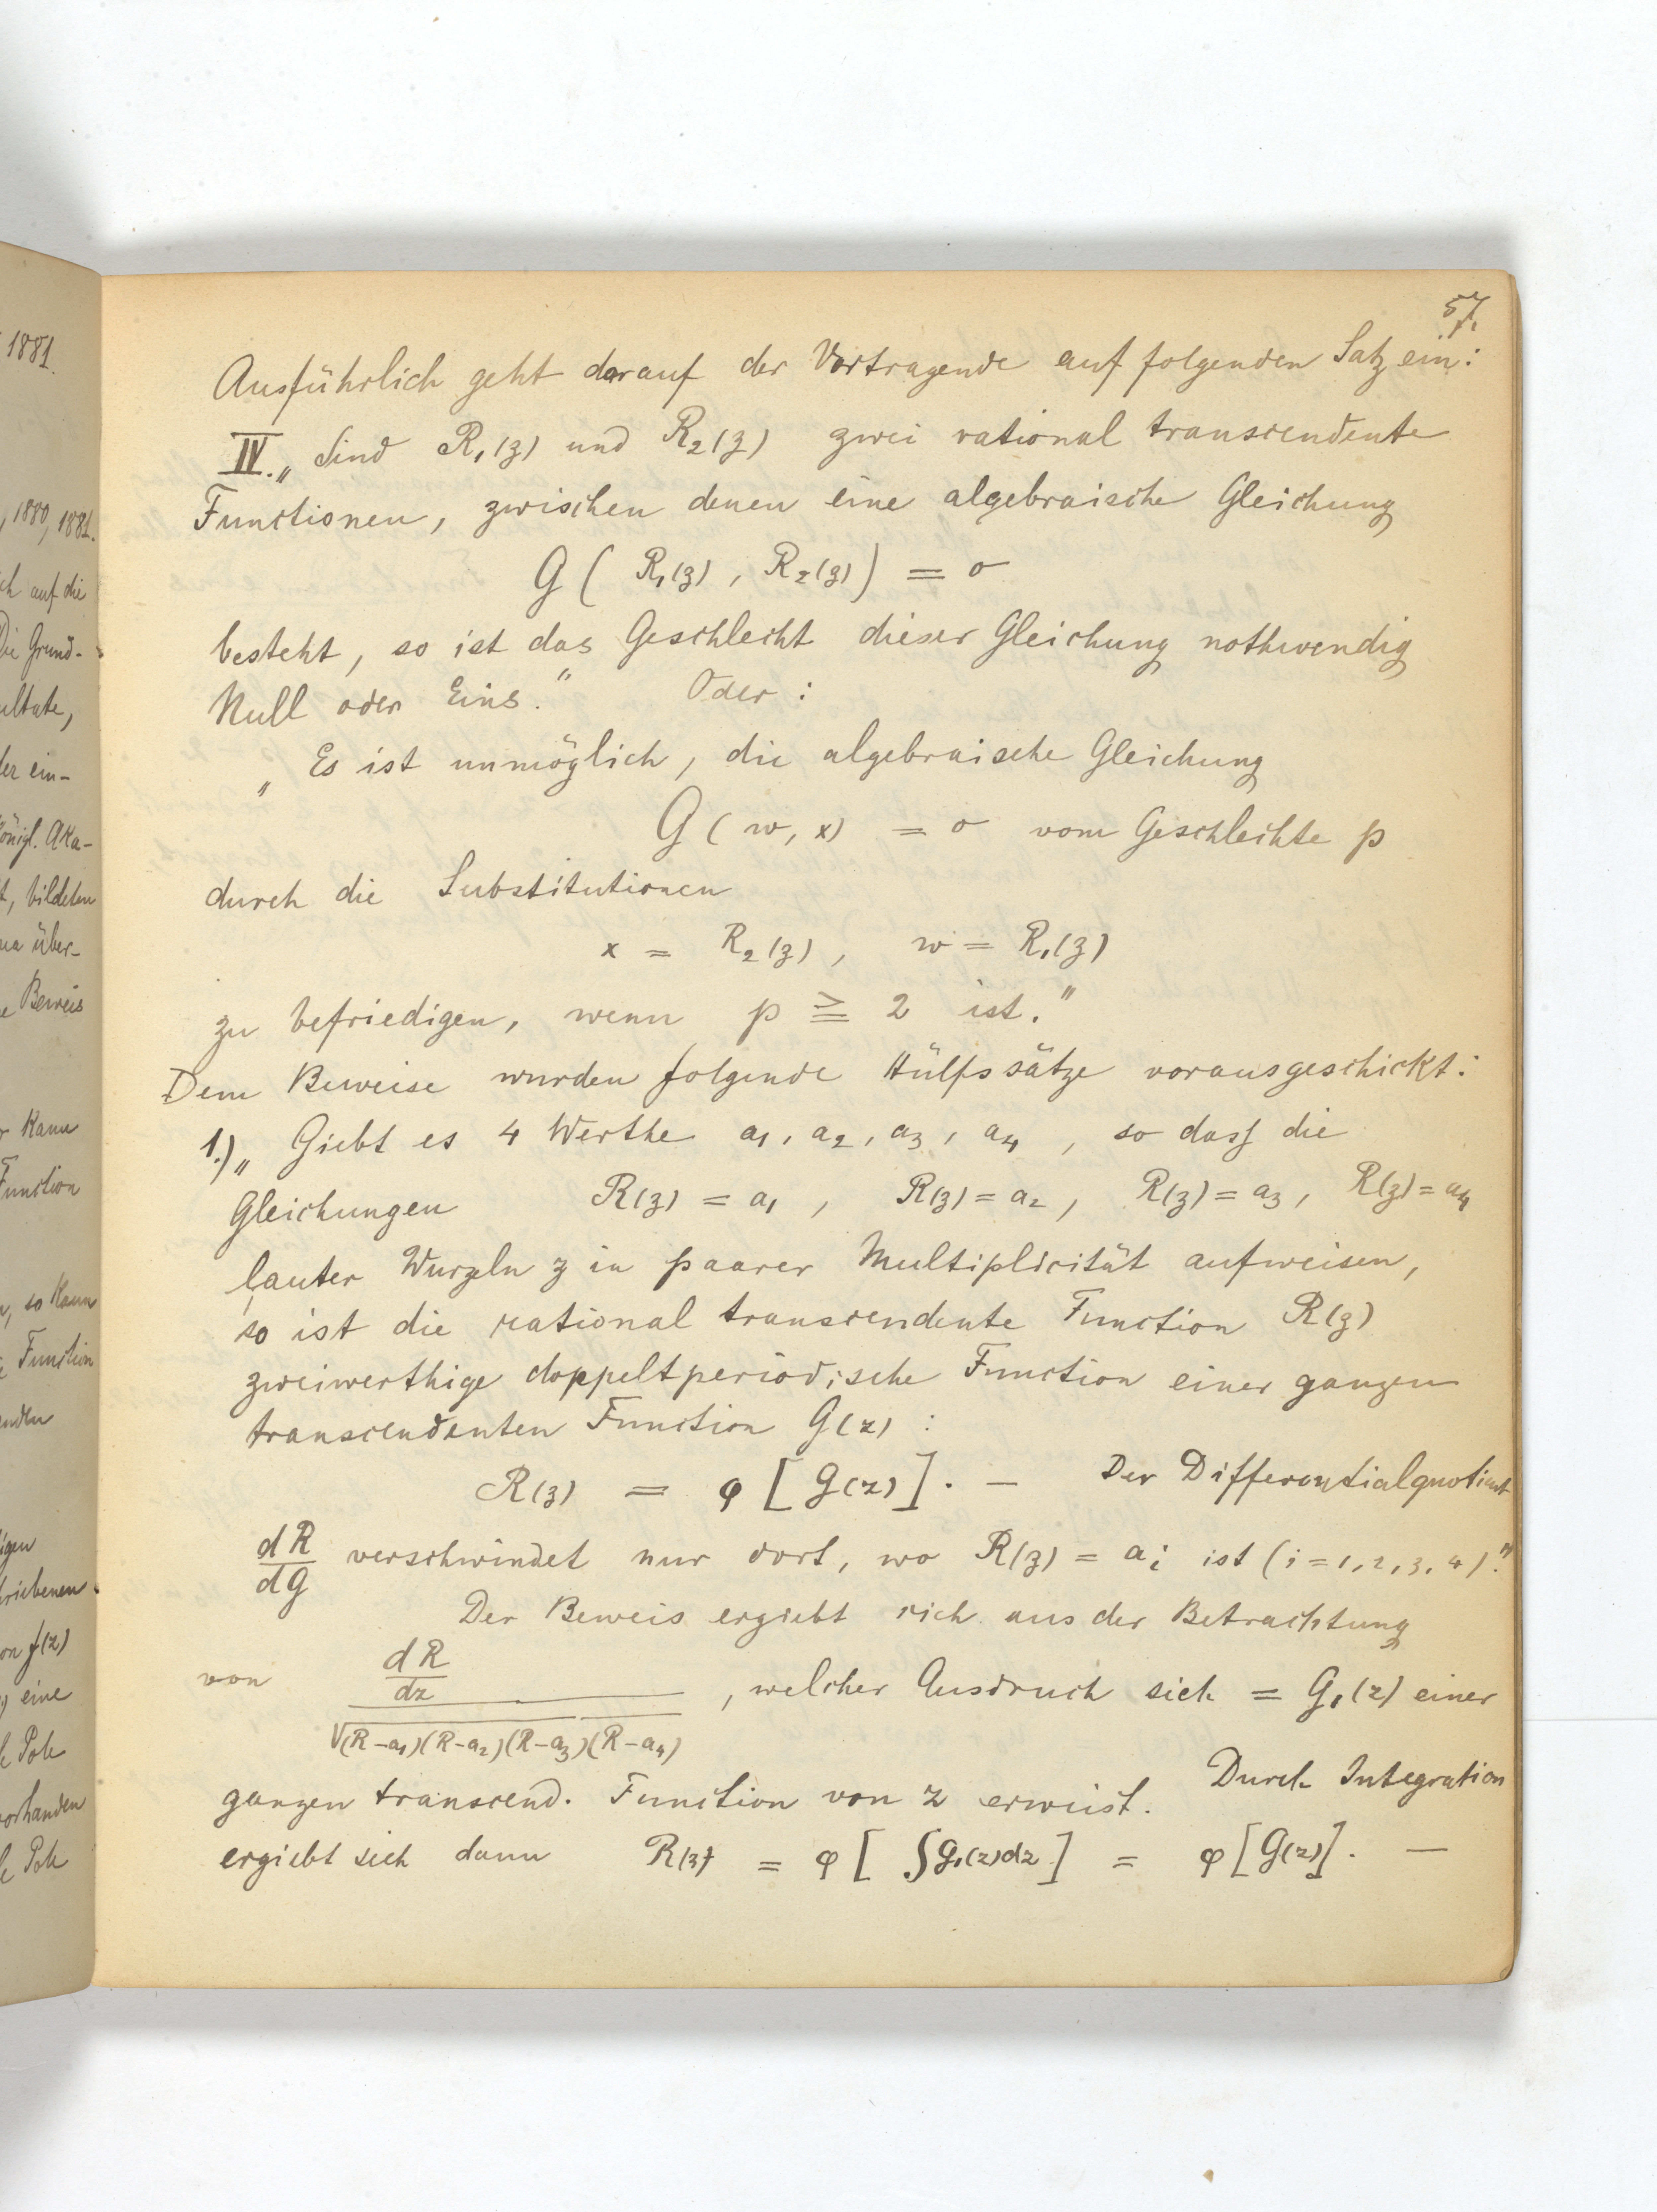 1881.
, 1880, 1881.
ch auf die
Die Grund-
ultate,
der ein-
Königl. Aka-
t, bildeten
na über-
e Beweis
r Kann
Function
n, so Kann
e Function
enden
igen
hriebenen
on f(z)
) eine
le Pole
vorhanden
le Pole
57.
Ausführlich geht darauf der Vortragende auf folgenden Satz ein:
IV. „ Sind R₁(z) und R₂(z) zwei rational transcendente
Functionen, zwischen denen eine algebraische Gleichung
G ( R₁(z) , R₂(z) ) = 0
besteht, so ist das Geschlecht dieser Gleichung nothwendig
Null oder Eins.“ Oder :
„ Es ist unmöglich, die algebraische Gleichung
G ( w, x) = 0 vom Geschlechte p
durch die Substitutionen
x = R₂(z) , w = R₁(z)
zu befriedigen, wenn p ≧ 2 ist.“
Dem Beweise wurden folgende Hülfssätze vorausgeschickt:
1.) „ Giebt es 4 Werthe a₁, a₂, a₃, a₄ , so dass die
Gleichungen R(z) = a₁ , R(z) = a₂ , R(z) = a₃ , R(z) = a₄
lauter Wurzeln z in paarer Multiplicität aufweisen,
so ist die rational transcendente Function R(z)
zweiwerthige doppeltperiodische Function einer ganzen
transcendenten Function G(z) :
R(z) = φ [ G(z) ] . — Der Differentialquotient
dR/dG verschwindet nur dort, wo R(z) = aᵢ ist (i = 1, 2, 3, 4).“
Der Beweis ergiebt sich aus der Betrachtung
von (dR/dz) / √(R-a₁)(R-a₂)(R-a₃)(R-a₄) , welcher Ausdruck sich = G₁(z) einer
ganzen transcend. Function von z erweist. Durch Integration
ergiebt sich dann R(z) = φ [ ∫G₁(z)dz ] = φ [G(z)] . —